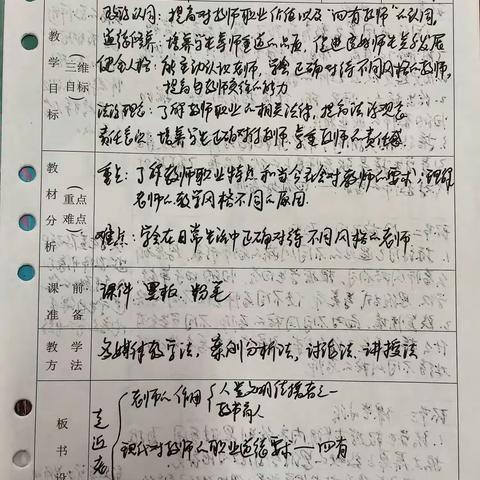 政治认同：提高对教师职业价值以及"四有教师"的认同
道德修养：培养学生尊师重道的品质，促进良好师生关系发展
健全人格：能主动认识老师，学会正确对待不同风格的教师，
提高与教师交往的能力
法治观念：了解教师职业的相关法律，提高法治观念
责任意识：培养学生正确对待教师、尊重教师的责任感
教学目标（三维目标）
重点：了解教师职业特点和当今社会对教师的要求；理解
老师的教学风格不同的原因
难点：学会在日常生活中正确对待不同风格的老师
教材分析（重点难点）
课前准备
课件、黑板、粉笔
教学方法
多媒体教学法，案例分析法，讨论法、讲授法
板书设
走近老
老师的作用
人类文明传播者之一
教书育人
现代对教师的职业道德要求——四有